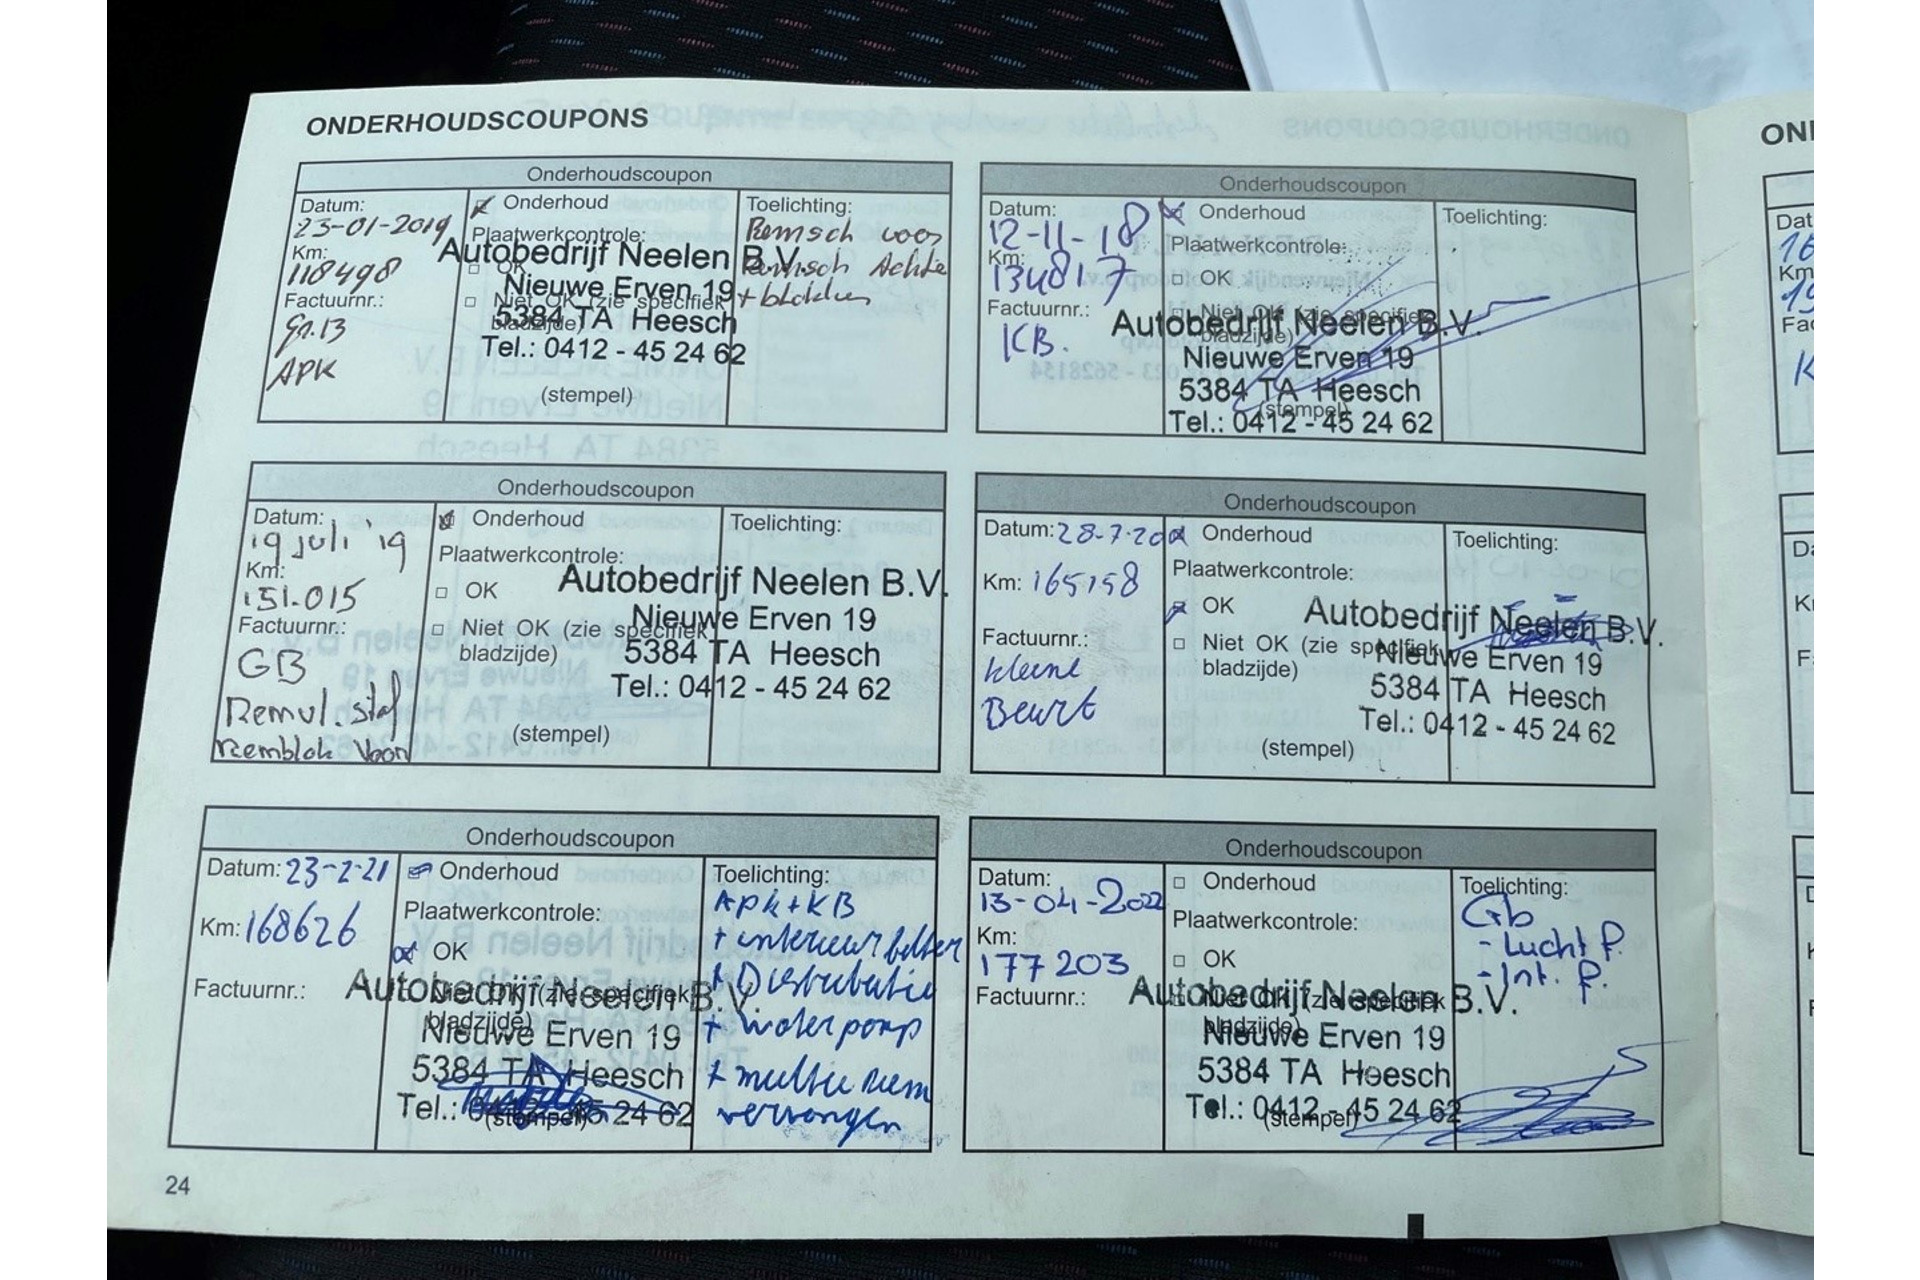 ONDERHOUDSCOUPONS
Onderhoudscoupon
Datum:
23-01-2019
Km:
118498
Factuurnr.:
gr.13
APK
Onderhoud
Plaatwerkcontrole:
OK
Niet OK (zie specifiek
bladzijde)
Autobedrijf Neelen B.V.
Nieuwe Erven 19
5384 TA Heesch
Tel.: 0412 - 45 24 62
(stempel)
Toelichting:
Remsch voor
Remsch Achte
+ blokken
Onderhoudscoupon
Datum:
12-11-18
Km:
134817
Factuurnr.:
KB.
Onderhoud
Plaatwerkcontrole:
OK
Niet OK (zie specifiek
bladzijde)
Autobedrijf Neelen B.V.
Nieuwe Erven 19
5384 TA Heesch
(stempel)
Tel.: 0412 - 45 24 62
Toelichting:
Onderhoudscoupon
Datum:
19 juli '19
Km:
151.015
Factuurnr.:
GB
Remvl. staf
Remblok voor
Onderhoud
Plaatwerkcontrole:
OK
Niet OK (zie specifiek
bladzijde)
Autobedrijf Neelen B.V.
Nieuwe Erven 19
5384 TA Heesch
Tel.: 0412 - 45 24 62
(stempel)
Toelichting:
Onderhoudscoupon
Datum: 28-7-20
Km: 165158
Factuurnr.:
kleine
Beurt
Onderhoud
Plaatwerkcontrole:
OK
Niet OK (zie specifiek
bladzijde)
Autobedrijf Neelen B.V.
Nieuwe Erven 19
5384 TA Heesch
Tel.: 0412 - 45 24 62
(stempel)
Toelichting:
Onderhoudscoupon
Datum: 23-2-21
Km: 168626
Factuurnr.:
Onderhoud
Plaatwerkcontrole:
OK
Niet OK (zie specifiek
bladzijde)
Autobedrijf Neelen B.V.
Nieuwe Erven 19
5384 TA Heesch
Tel.: 0412 - 45 24 62
(stempel)
Toelichting:
APK + KB
+ interieurfilter
+ Distributie
+ waterpomp
+ multie riem
vervangen
Onderhoudscoupon
Datum:
13-04-2022
Km:
177203
Factuurnr.:
Onderhoud
Plaatwerkcontrole:
OK
Niet OK (zie specifiek
bladzijde)
Autobedrijf Neelen B.V.
Nieuwe Erven 19
5384 TA Heesch
Tel.: 0412 - 45 24 62
(stempel)
Toelichting:
Gb
- Lucht f.
- Int. f.
24